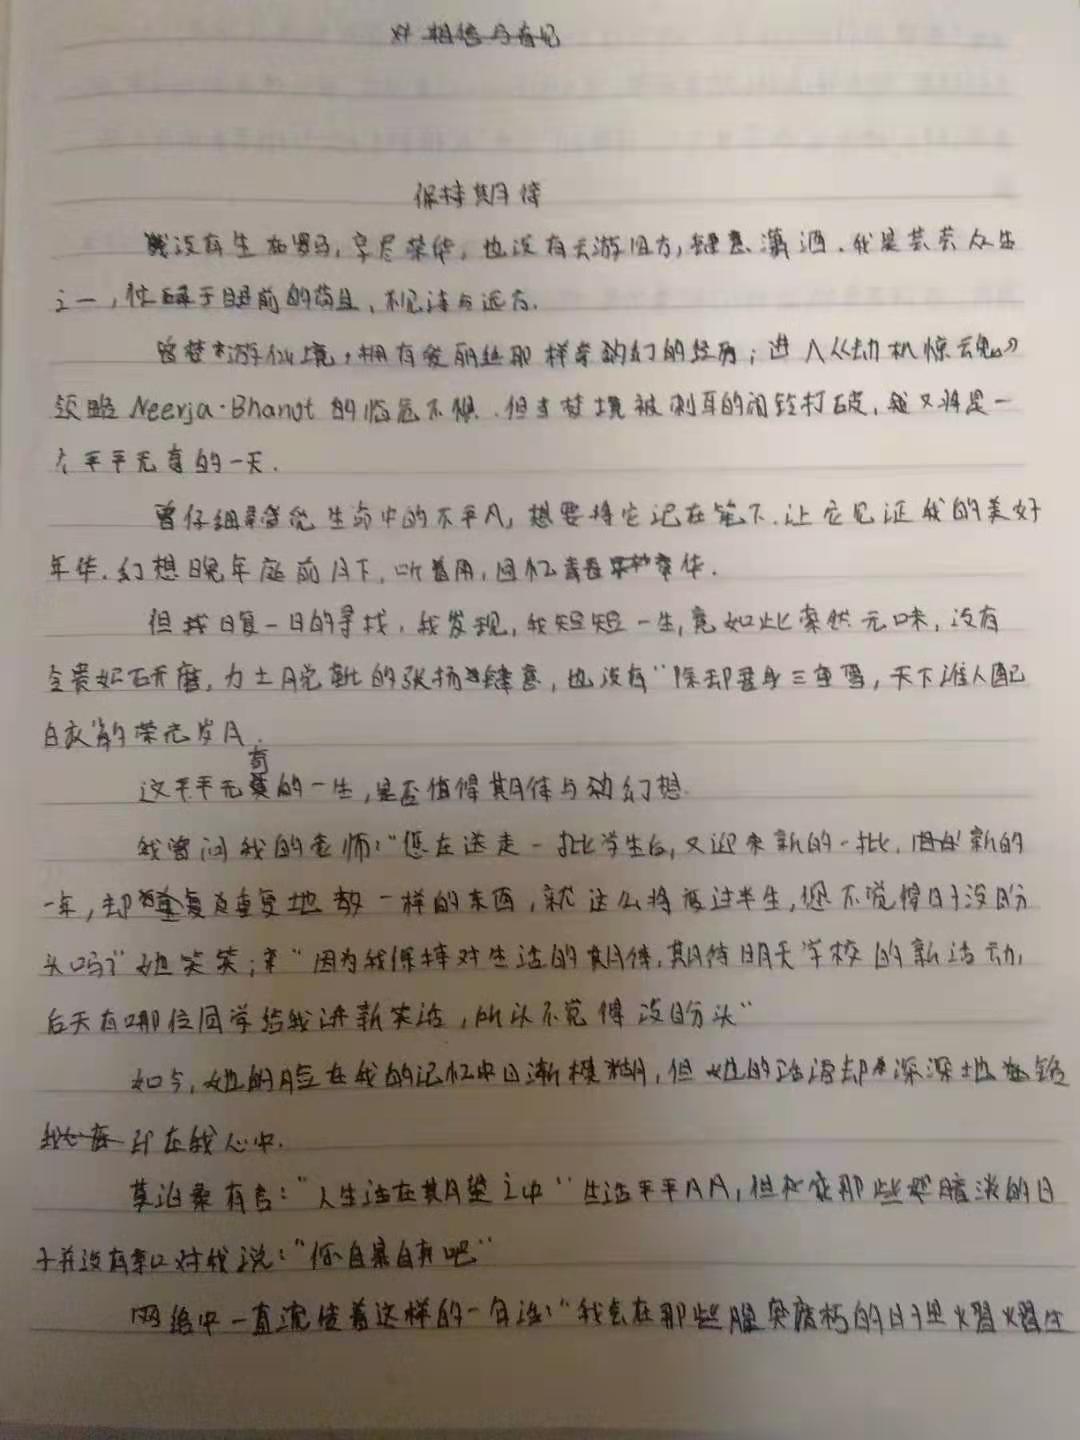 保持期待
我没有生在罗马,享尽荣华,也没有云游四方,肆意潇洒.我是芸芸众生
之一,忙碌于眼前的苟且,不见诗与远方.
曾梦游仙境,拥有爱丽丝那样奇幻的经历;进入《劫机惊魂》
领略Neerja·Bhanot的临危不惧.但当梦境被刺耳的闹铃打破,我又将是一
个平平无奇的一天.
曾仔细寻觅生命中的不平凡,想要将它记在笔下.让它见证我的美好
年华.幻想晚年庭前月下,听着雨,回忆青春年华.
但我日复一日的寻找.我发现,我短短一生,竟如此索然无味,没有
贵妃研磨,力士脱靴的张扬肆意,也没有"除却君身三重雪,天下谁人配
白衣"的荣光岁月.
这平平无奇的一生,是否值得期待与幻想.
我曾问我的老师:"您在送走一批学生后,又迎来新的一批.新的
一年,却重复重复地教一样的东西,就这么将度过半生,您不觉得日子没盼
头吗?"她笑笑;"因为我保持对生活的期待,期待明天学校的新活动,
后天有哪位同学给我讲新笑话,所以不觉得没盼头"
如今,她的脸在我的记忆中日渐模糊,但她的话语却深深地铭
印在我心中.
莫泊桑有言:"人生活在期望之中"生活平平凡凡,但那些暗淡的日
子并没有亲口对我说:"你自暴自弃吧"
网络中一直流传着这样的一句话:"我会在那些腥臭腐朽的日子里熠熠生